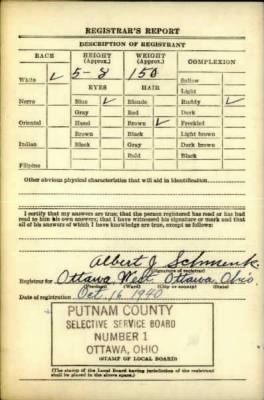 REGISTRAR'S REPORT
DESCRIPTION OF REGISTRANT
RACE HEIGHT (Approx.) WEIGHT (Approx.) COMPLEXION
White ✓ 5-8 150 Sallow
EYES HAIR Light
Negro Blue ✓ Blonde Ruddy ✓
Gray Red Dark
Oriental Hazel Brown ✓ Freckled
Brown Black Light brown
Indian Black Gray Dark brown
Bald Black
Filipino
Other obvious physical characteristics that will aid in identification
I certify that my answers are true; that the person registered has read or has had
read to him his own answers; that I have witnessed his signature or mark and that
all of his answers of which I have knowledge are true, except as follows:
Albert J. Schmenk
(Signature of registrar)
Registrar for Ottawa West Ottawa, Ohio.
(Precinct) (Ward) (City or county) (State)
Date of registration Oct. 16, 1940
PUTNAM COUNTY
SELECTIVE SERVICE BOARD
NUMBER 1
OTTAWA, OHIO
(STAMP OF LOCAL BOARD)
(The stamp of the Local Board having jurisdiction of the registrant
shall be placed in the above space.)